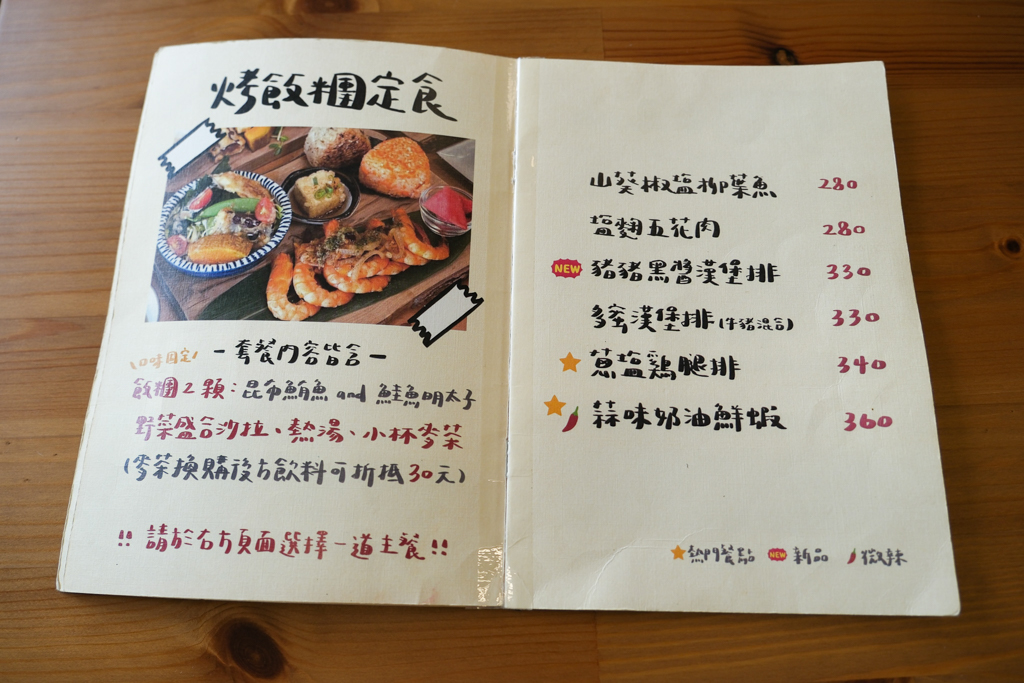 烤飯糰定食
-套餐內容皆含-
\口味固定/
飯糰2顆:昆布鮪魚 and 鮭魚明太子
野菜盛合沙拉、熱湯、小杯麥茶
(麥茶換購後方飲料可折抵30元)
!! 請於右方頁面選擇一道主餐 !!
山葵椒鹽柳葉魚 280
塩麴五花肉 280
NEW 豬豬黑醬漢堡排 330
多蜜漢堡排(牛豬混合) 330
蔥塩鷄腿排 340
蒜味奶油鮮蝦 360
熱門餐點 NEW 新品 微辣